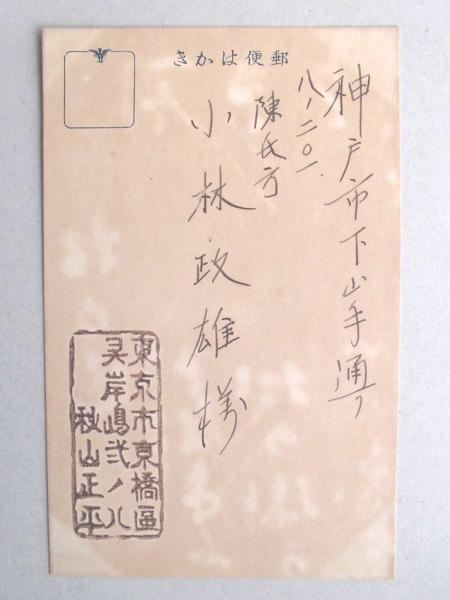 郵便はかき
神戸市下山手通り
八ノ二〇一
陳氏方
小林政雄様
東京市京橋區
灵岸嶋弐ノ八
秋山正平